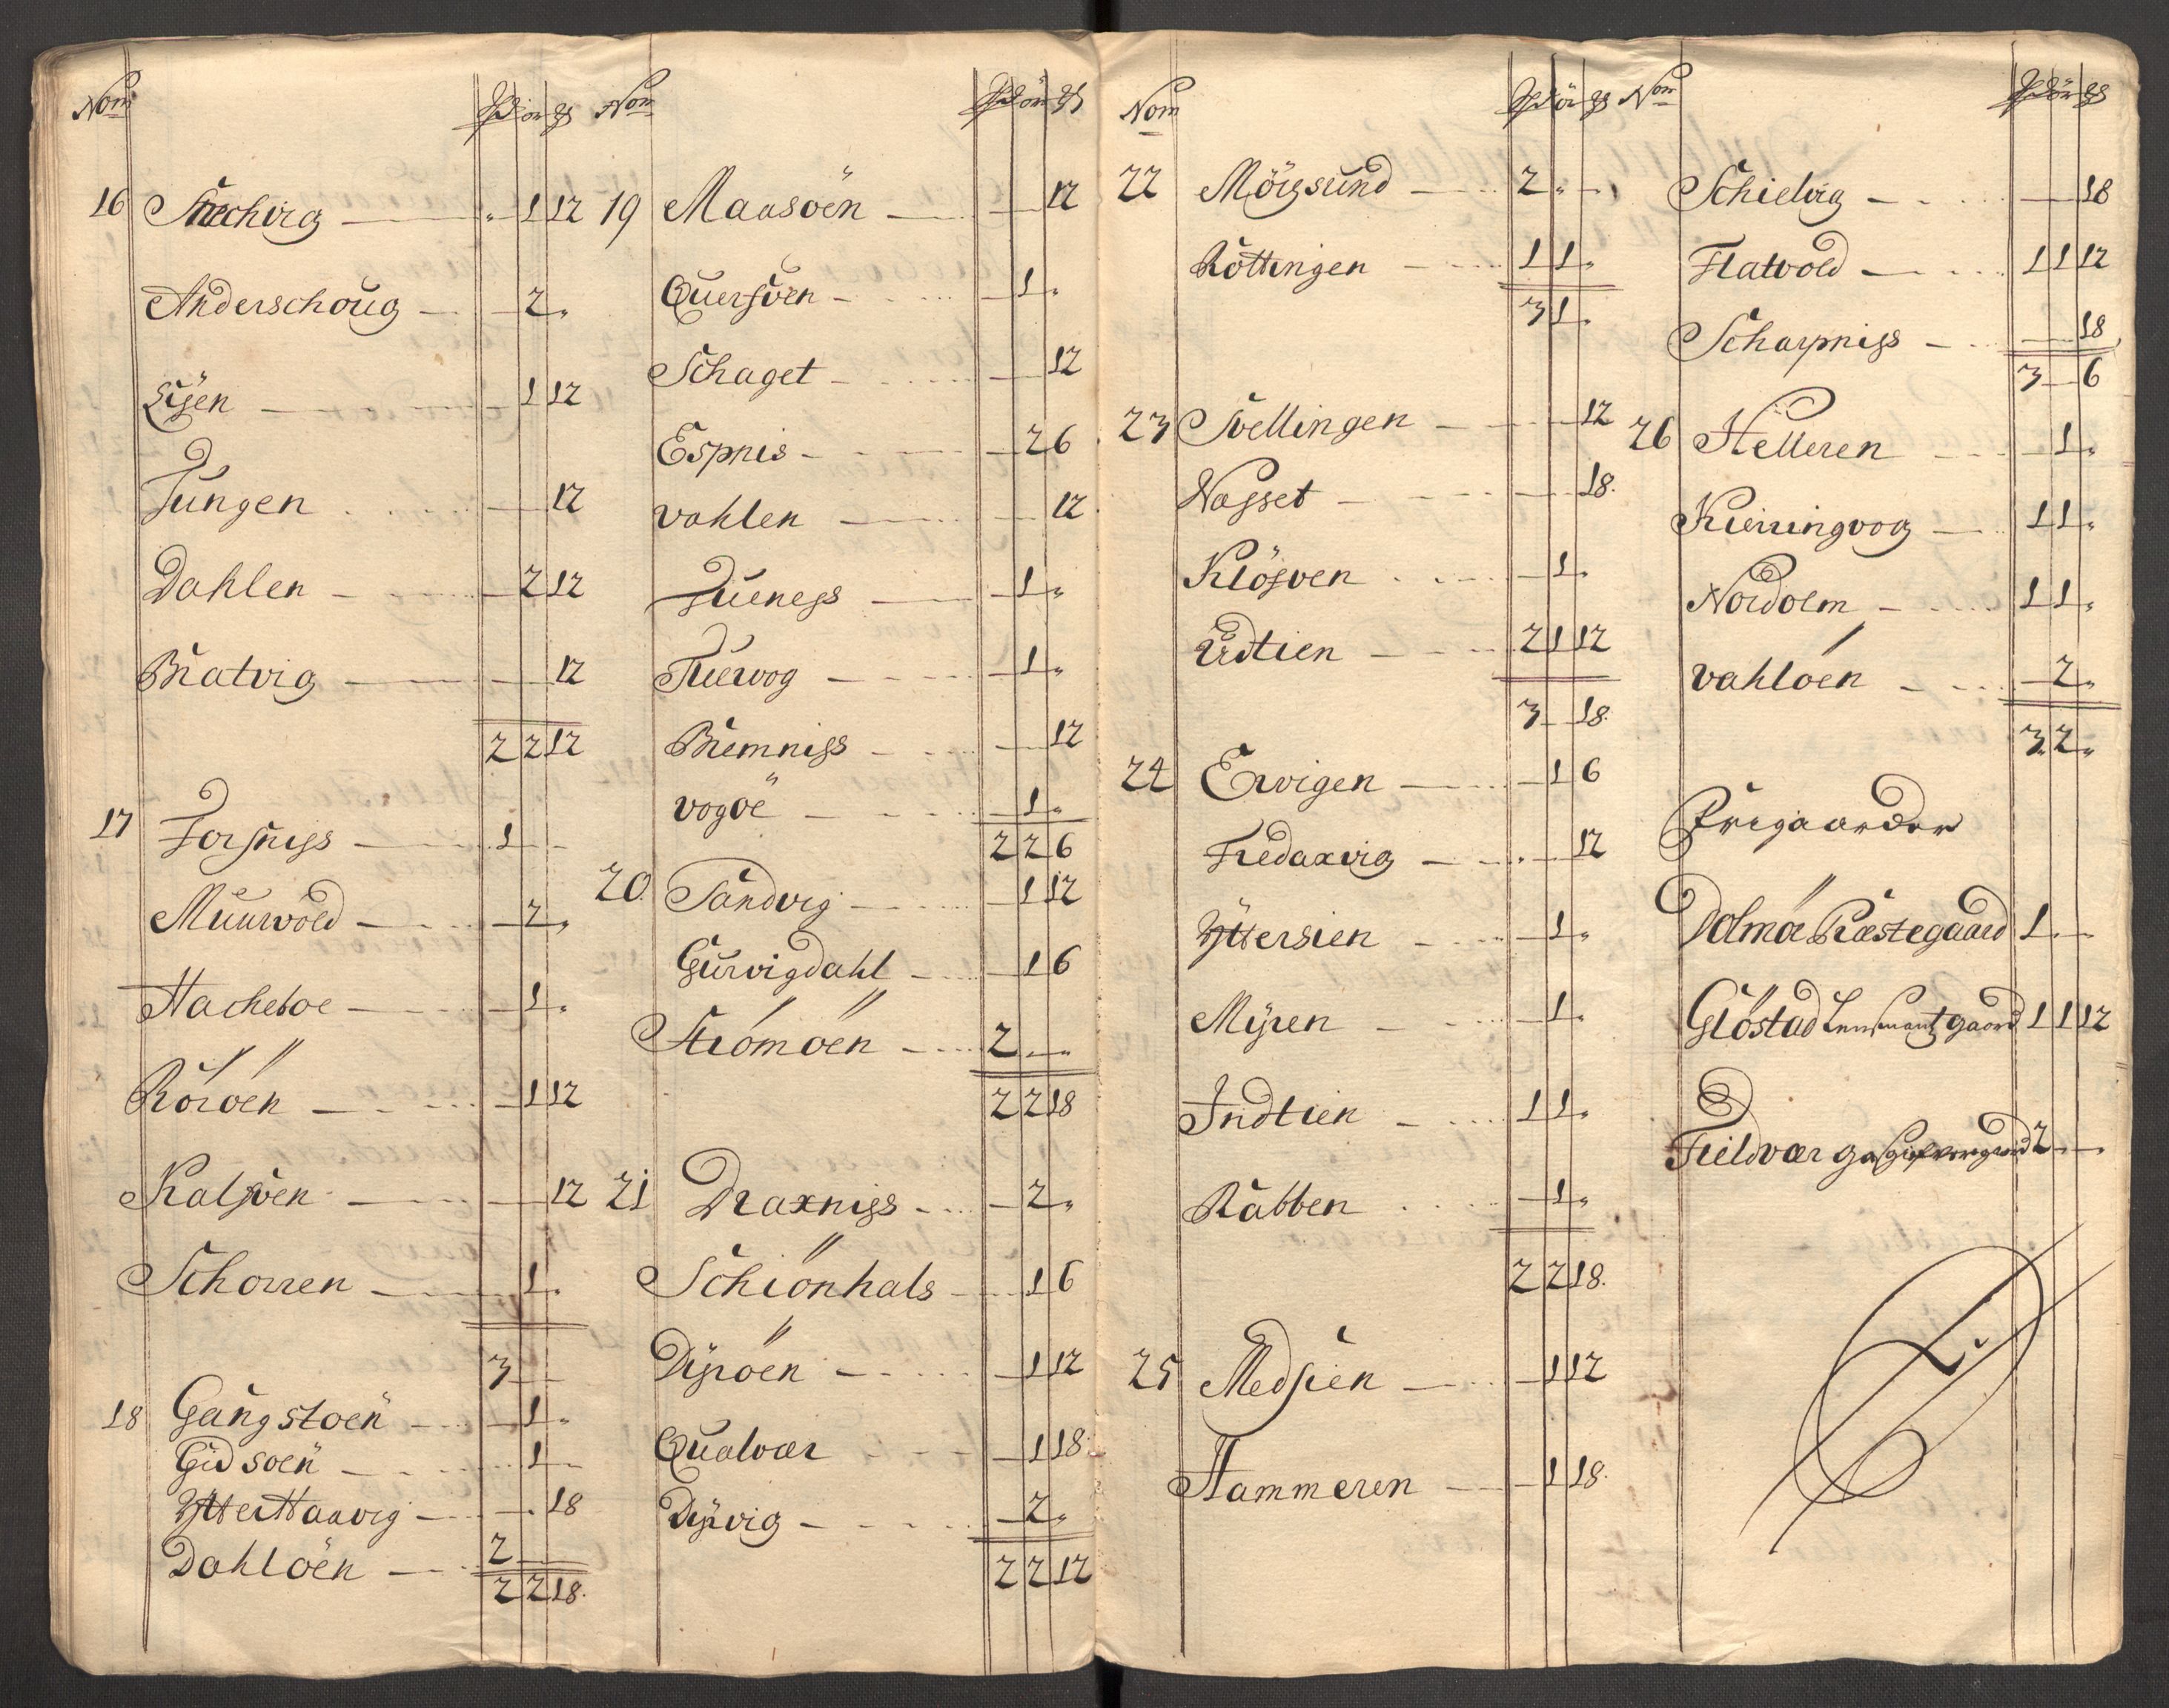 Nom
16 Strechvig 1 12
Anderschoug 2
1 12
Tungen 12
Dahlen 2 12
Bratvig 12
2 2 12
17 Forsniss 1
Muurvold 2
Hacheboe 1
Röröen 1 12
Kalsøen 12
Schorren 1
3
18 Gangstoën 1
Gidsoën 1
Ytter Haavig 18
Dahloën 2
2 2 18
Nom
19 Maasöen 12
Quersøen 1
Schaget 12
Espnis 2 6
vahlen 12
Fueness 1
Tuervog 1
Bremniss 12
vogöe 1
2 2 6
20 Sandvig 1 12
Gurvigdahl 1 6
Strömöen 2
2 2 18
21 Draxniss 2
Schiönhals 1 6
Dÿröen 1 12
Qualvær 1 18
Dÿrvig 2
2 2 12
Nom
22 Möysund 2
Röttingen 1 1
3 1
23 Svellingen 12
Nasset 18
Klösven 1
Urdtien 2 1 12
3 18
24 Ervigen 1 6
Fredaxvig 12
Yttersien 1
Myren 1
Indtien 1 1
Rabben 1
2 2 18
25 Medsien 1 12
Hammeren 1 18
Nom
Schielvig 18
Flatvold 1 1 12
Scharpniss 18
3 6
26 Helleren 1
Kierringvog 1 1
Nordolm 1 1
vahlöen 2
3 2
Frigaarder
Dolmöe Præstegaard 1
Glöstad Lensmants gaard 1 1 12
Fieldvær 2